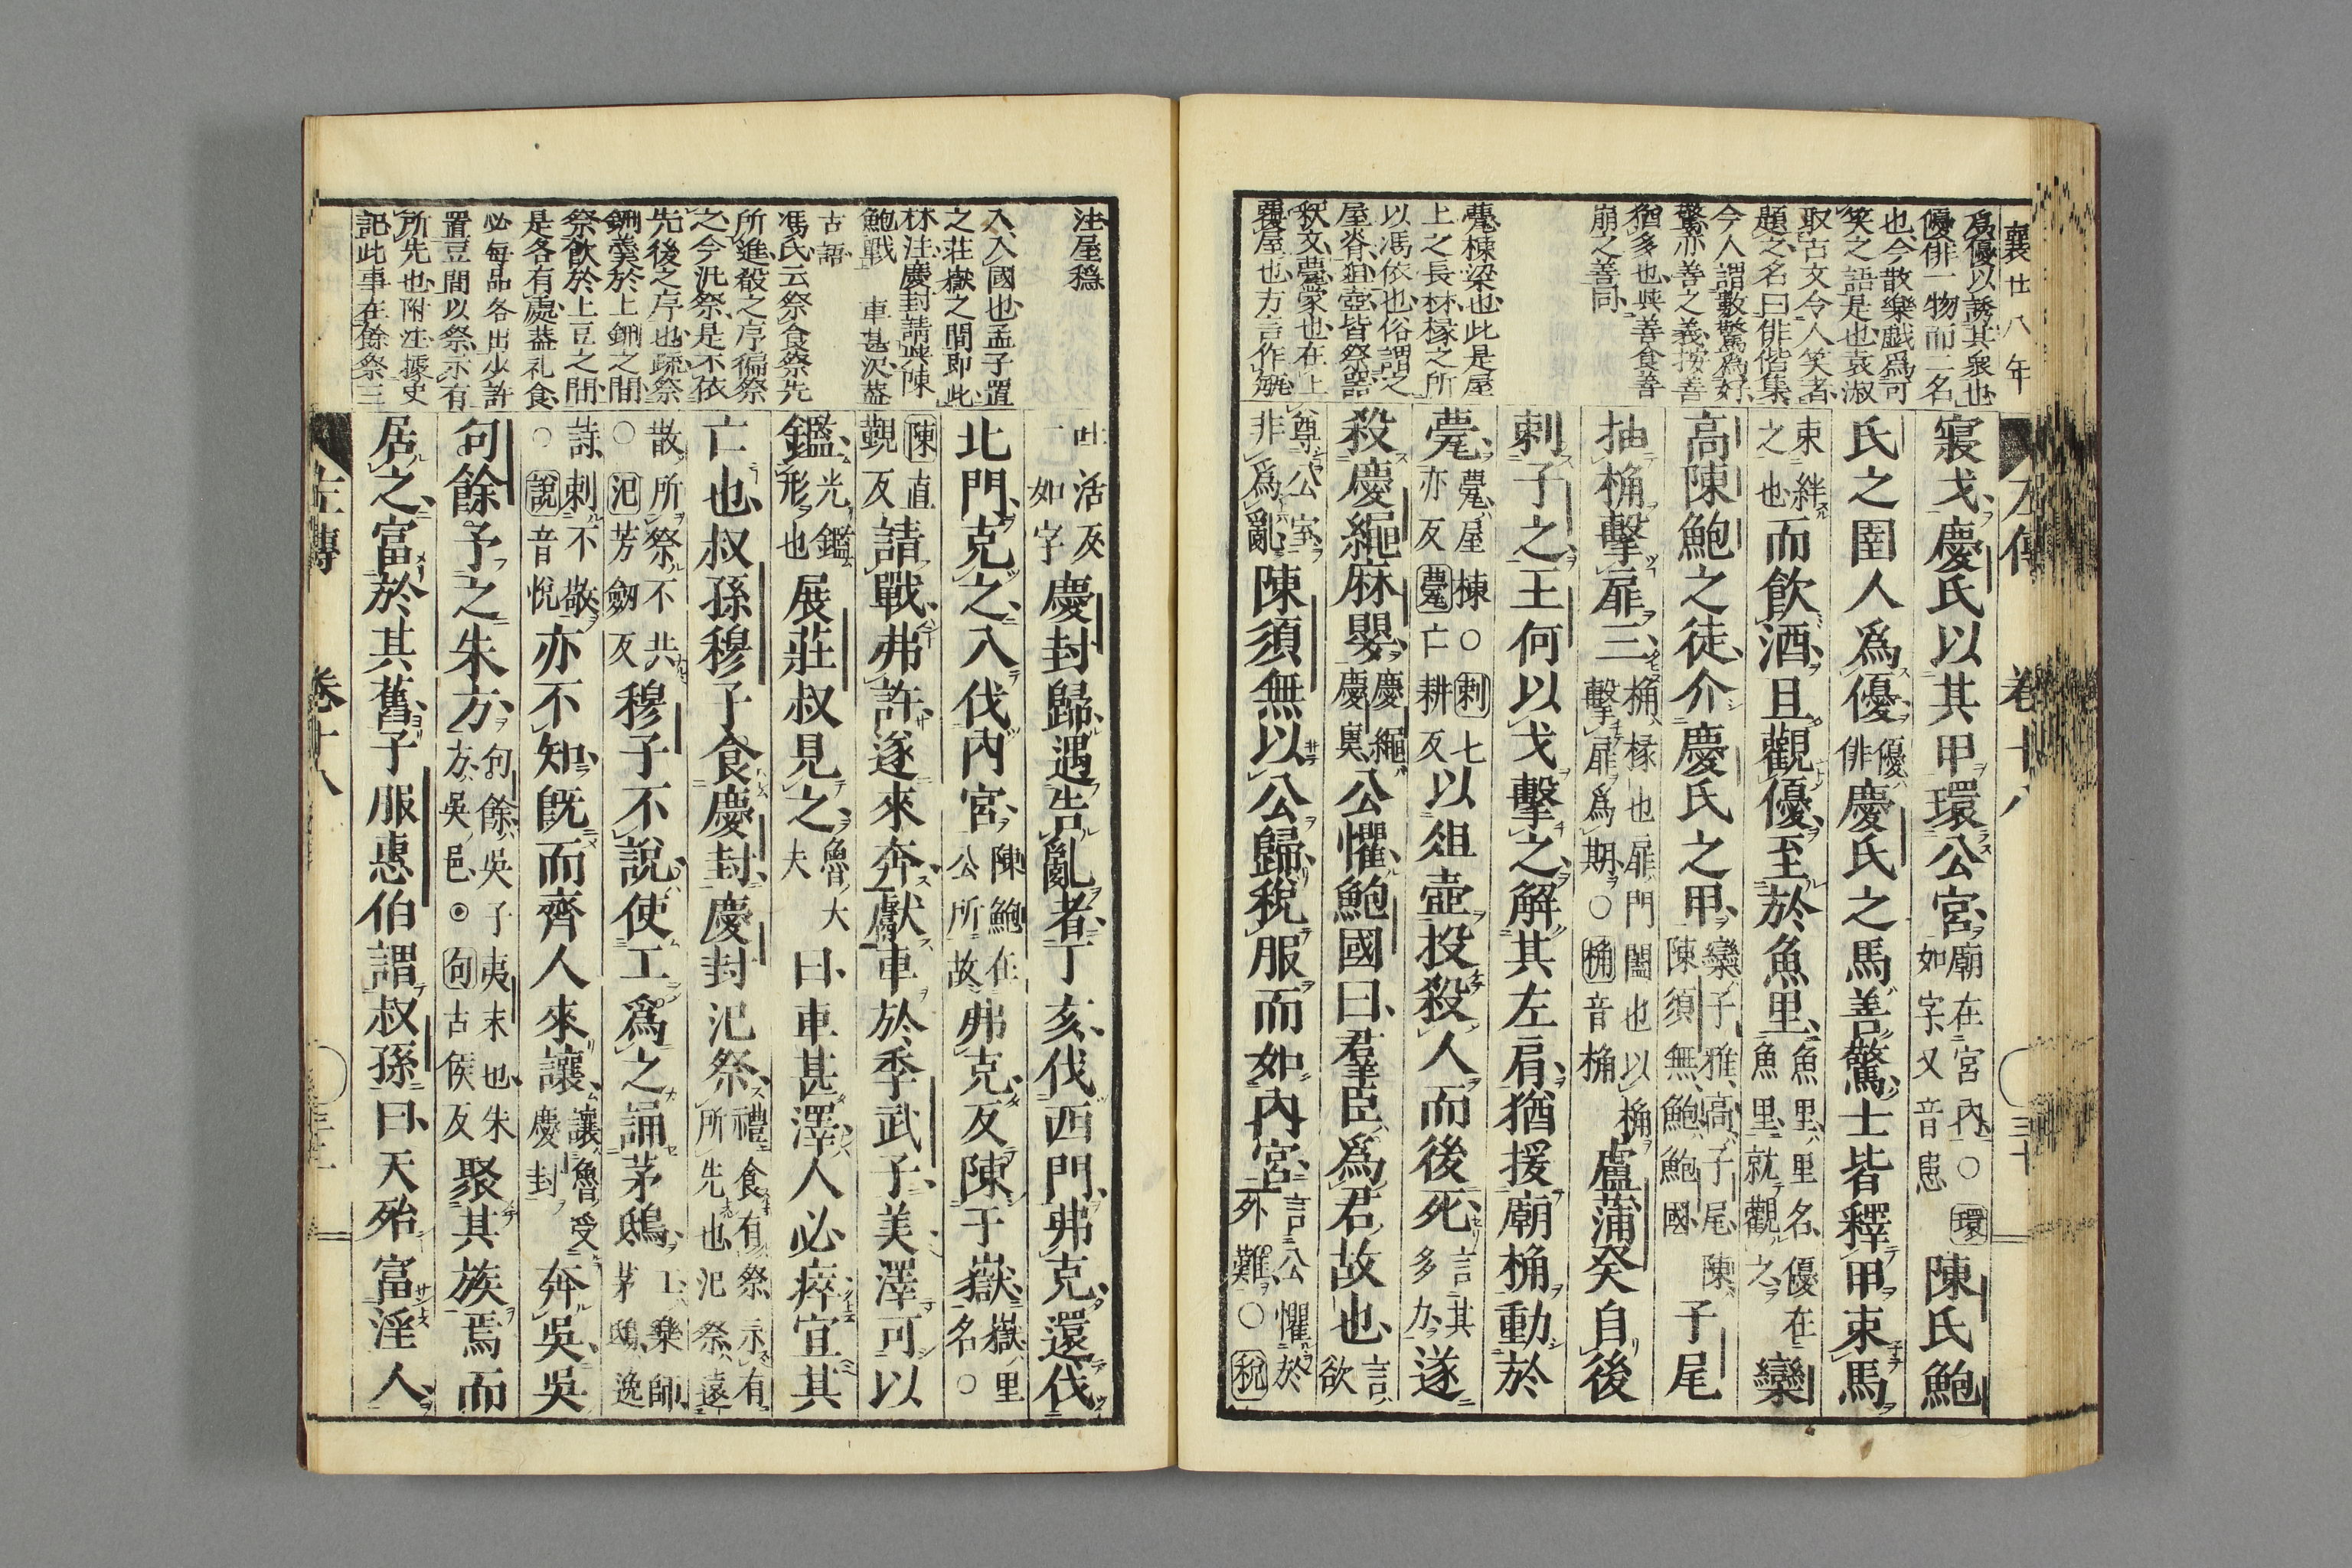 襄廿八年
爲優以誘其衆也
優俳一物而二名
也今散樂戯爲可
笑之語是也袁淑
取古文令人笑者
題之名曰俳偕集
今人謂數驚爲好
驚亦善之義按善
猶多也與善食善
崩之善同
甍棟梁也此是屋
上之長材椽之所
以馮依也俗謂之
屋脊俎壺皆祭器
釈文甍蒙也在上
覆屋也方言作
左傳 卷十八 三十
寢戈慶氏以其甲環公宮廟在宮內○環如字又音患陳氏鮑
氏之圉人爲優優俳慶氏之馬善驚士皆釋甲束馬
束絆之也而飲酒且觀優至於魚里魚里里名優在魚里就觀之欒
高陳鮑之徒介慶氏之甲欒子雅高子尾陳陳須無鮑鮑國子尾
抽桷擊扉三桷椽也扉門闔也以桷擊扉爲期○桷音桷盧蒲癸自後
刺子之王何以戈擊之解其左肩猶援廟桷動於
甍甍屋棟○刺七亦反甍亡耕反以俎壺投殺人而後死言其多力遂
殺慶繩麻嬰慶繩慶奊公懼鮑國曰羣臣爲君故也言欲
尊公室非爲亂陳須無以公歸稅服而如內宮言公懼於外難○稅
注屋穏
入入國也孟子置
之莊嶽之間即此
林注慶封請與陳
鮑戰 車甚沢蓋
古語
馮氏云祭食祭先
所進殽之序徧祭
之今汎祭是不依
先後之序也疏祭
鉶羹於上鉶之間
祭飲於上豆之間
是各有處蓋礼食
必毎品各出少許
置豆間以祭示有
所先也附注據史
記此事在餘祭三
吐活反一如字慶封歸遇告亂者丁亥伐西門弗克還伐
北門克之入伐內宮陳鮑在公所故弗克反陳于嶽嶽里名○
陳直覲反請戰弗許遂來奔獻車於季武子美澤可以
鑑光鑑形也展莊叔見之魯大夫曰車甚澤人必瘁宜其
亡也叔孫穆子食慶封慶封氾祭禮食有祭示有所先也氾祭遠
散所祭不共○氾芳劒反穆子不說使工爲之誦茅鴟工樂師茅鴟逸
詩刺不敬○說音悅亦不知旣而齊人來讓讓魯受慶封奔吳吳
句餘予之朱方句餘吳子夷末也朱方吳邑◉句古侯反聚其族焉而
居之富於其舊子服惠伯謂叔孫曰天殆富淫人
左傳 卷十八